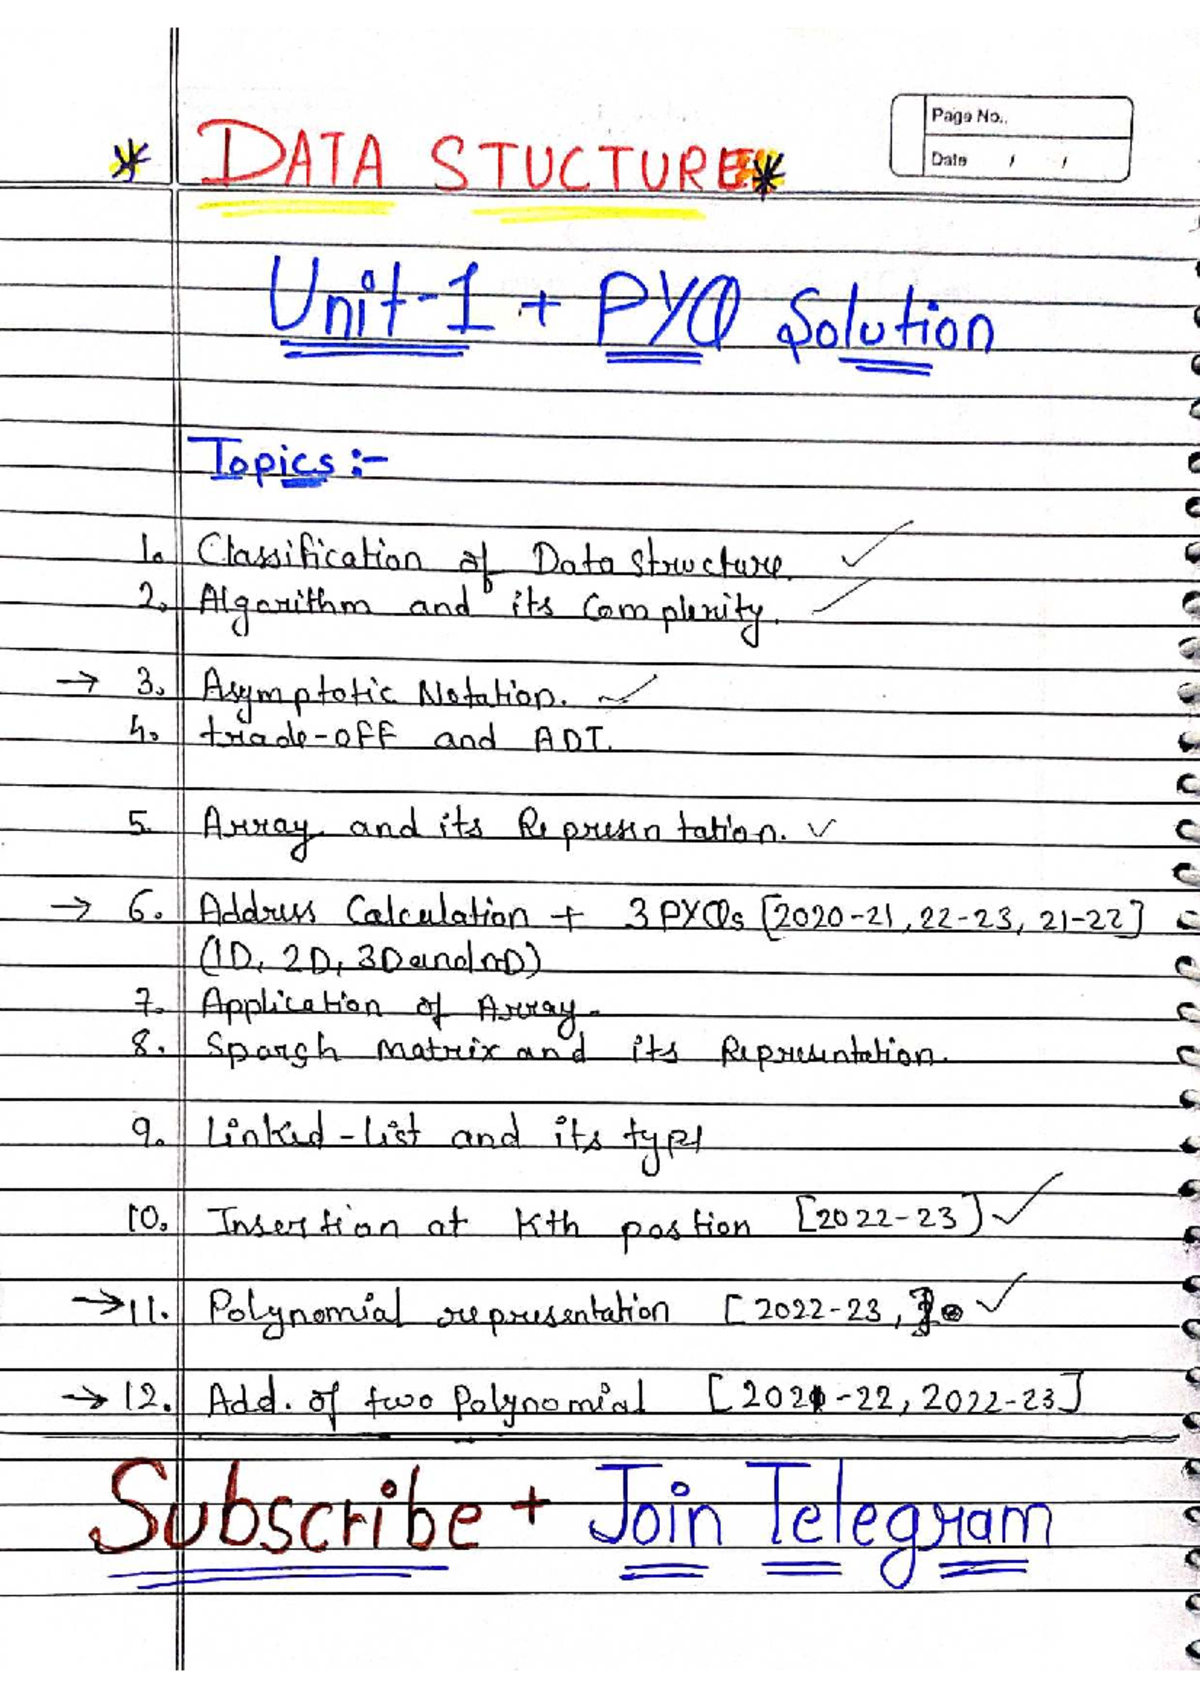 Page No..
Date / /
* DATA STUCTURE *
Unit-1 + PYQ Solution
Topics :-
1. Classification of Data Structure. ✓
2. Algorithm and its Complexity.
→ 3. Asymptotic Notation. ✓
4. trade-off and ADT.
5. Array and its Representation. ✓
→ 6. Address Calculation + 3 PYQs [2020-21, 22-23, 21-22]
(1D, 2D, 3D and nD)
7. Application of Array.
8. Spargh matrix and its Representation.
9. Linked-list and its type
10. Insertion at Kth postion [2022-23] ✓
→ 11. Polynomial representation [2022-23, ] ✓
→ 12. Add. of two Polynomial [2021-22, 2022-23]
Subscribe + Join Telegram